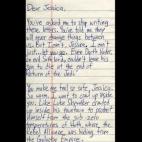 Dear Jessica,
You've asked me to stop writing
these letters. You've told me they
will never change things between
us. But I can't, Jessica, I won't
just let you go. Even Darth Vader,
an evil Sith lord, couldn't leave his
son to die at the end of
Return of the Jedi.
You make me feel so safe, Jessica.
So warm. I want to curl up inside
you. Like Luke Skywalker crawled
up inside his tauntaun to protect
himself from the sub zero
temperatures of Hoth where the
Rebel Alliance was hiding from
the Galactic Empire.